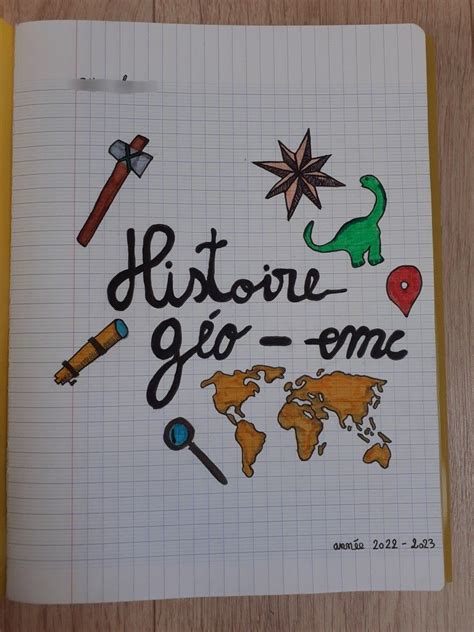 Histoire
géo - emc
année 2022 - 2023